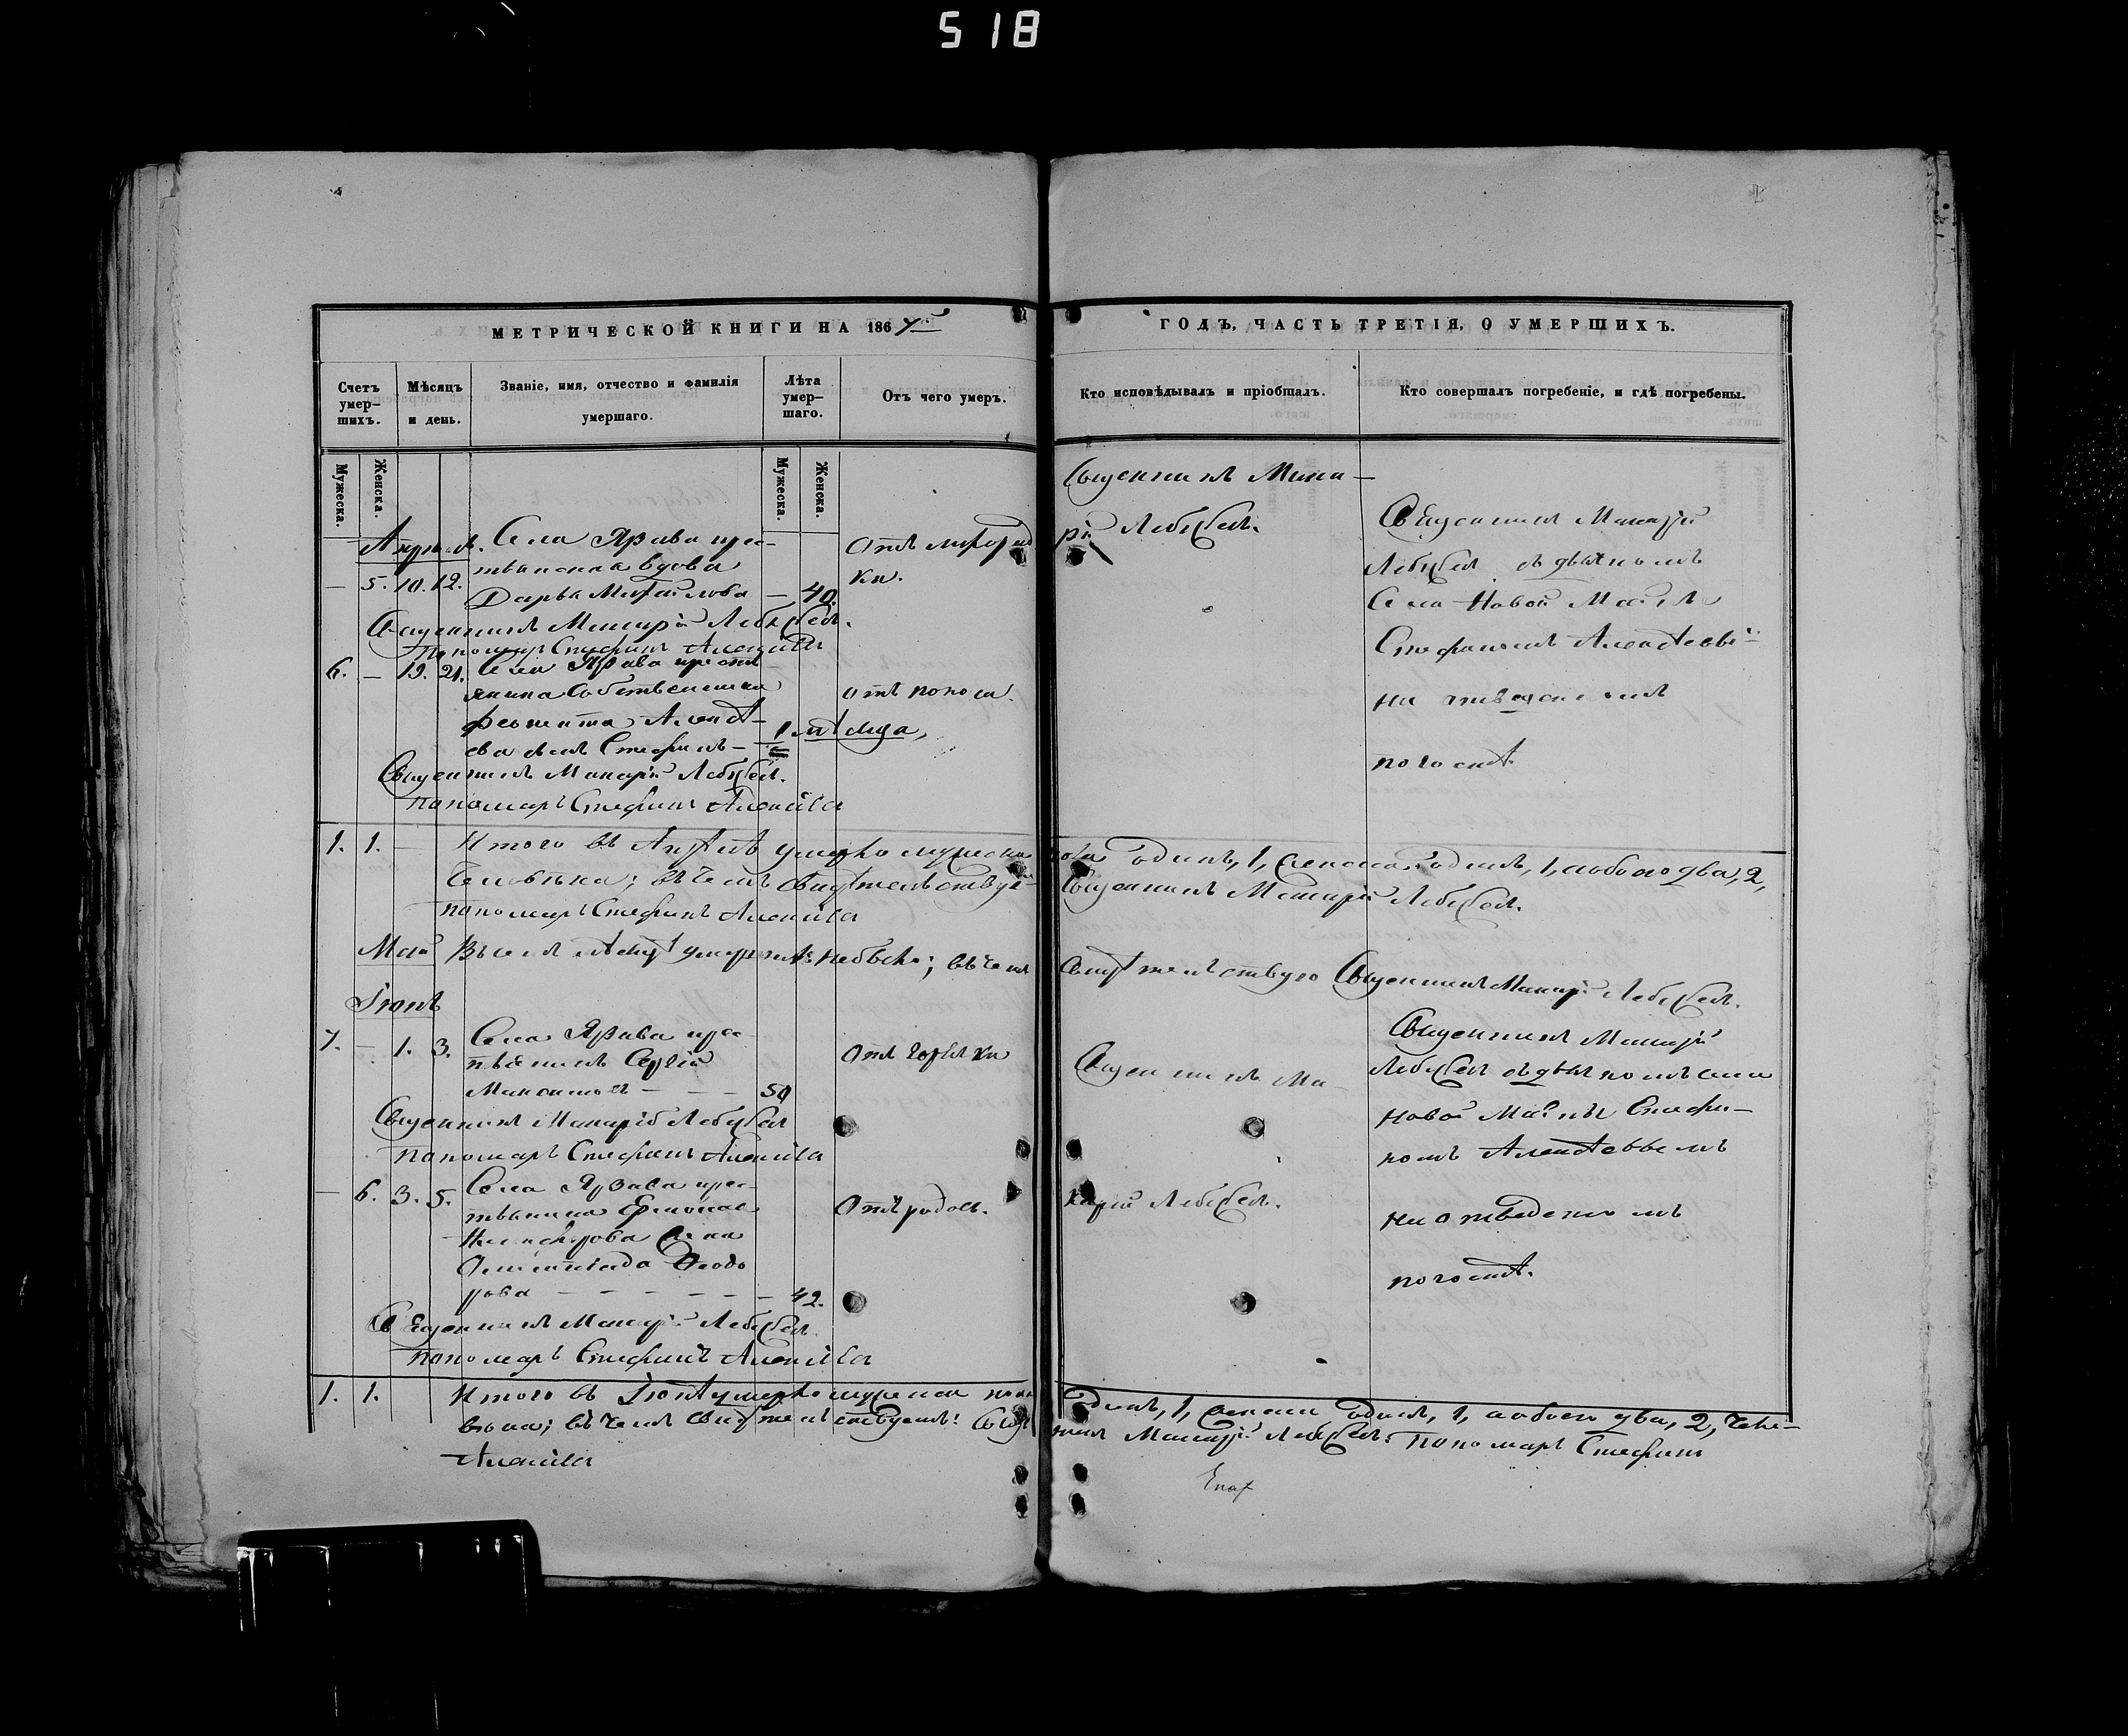 518
МЕТРИЧЕСКОЙ КНИГИ НА 1867й
ГОДЪ, ЧАСТЬ ТРЕТІЯ, О УМЕРШИХЪ.
Счетъ умер-
шихъ.
Мѣсяцъ
и день.
Званіе, имя, отчество и фамилія
умершаго.
Лѣта
умер-
шаго.
Отъ чего умеръ.
Кто исповѣдывалъ и пріобщалъ.
Кто совершалъ погребеніе, и гдѣ погребены.
Мужеска.
Женска.
Мужеска.
Женска.
Апрѣль.
— 5. 10. 12.
Села Ярава крес-
тьянская вдова
Дарья Михайлова — 40.
Отъ лихорад
ки.
Священникъ Мака-
рій Лебедевъ.
Священникъ Макарій
Лебедевъ съ дьячкомъ
Села Новой Маіны
Стефаномъ Алексѣевы-
на отведенномъ
погостѣ.
Священникъ Макарій Лебедевъ.
Пономарь Стефанъ Алексіевъ
6. — 19. 21.
Села Ярава крестъ
янина собственника
Алексѣ-
ева сынъ Стефанъ — 1 мѣсяца,
отъ поноса.
Священникъ Макарій Лебедевъ.
Пономарь Стефанъ Алексіевъ
1. 1. —
Итого въ Апрѣлѣ умерло мужеска пола одинъ, 1, женска одинъ, 1, обоего два, 2,
человѣка; въ чемъ свидѣтельствуемъ: Священникъ Макарій Лебедевъ.
Пономарь Стефанъ Алексіевъ
Май
Въ семъ мѣсяцѣ умершихъ небыло; въ чемъ свидѣтельствую Священникъ Макарій Лебедевъ.
Іюнь
7. — 1. 3.
Села Ярава крес-
тьянинъ Сергій
Максимовъ — — — 50
Отъ горячки
Священникъ Ма-
карій Лебедевъ.
Священникъ Макарій
Лебедевъ съ дьячкомъ села
Новой Маіны Стефа-
номъ Алексѣевымъ
на отведенномъ
погостѣ.
Священникъ Макарій Лебедевъ
Пономарь Стефанъ Алексіевъ
— 6. 3. 5.
Села Ярава крес-
тьянина
Никифорова жена
Ѳеодо
рова — — — — — 42.
Отъ родовъ.
Священникъ Макарій Лебедевъ
Пономарь Стефанъ Алексіевъ
1. 1.
Итого въ Іюнѣ умерло мужеска пола одинъ, 1, женска одинъ, 1, обоего два, 2, чело-
вѣка; въ чемъ свидѣтельствуемъ: Священникъ Макарій Лебедевъ. Пономарь Стефанъ
Алексіевъ